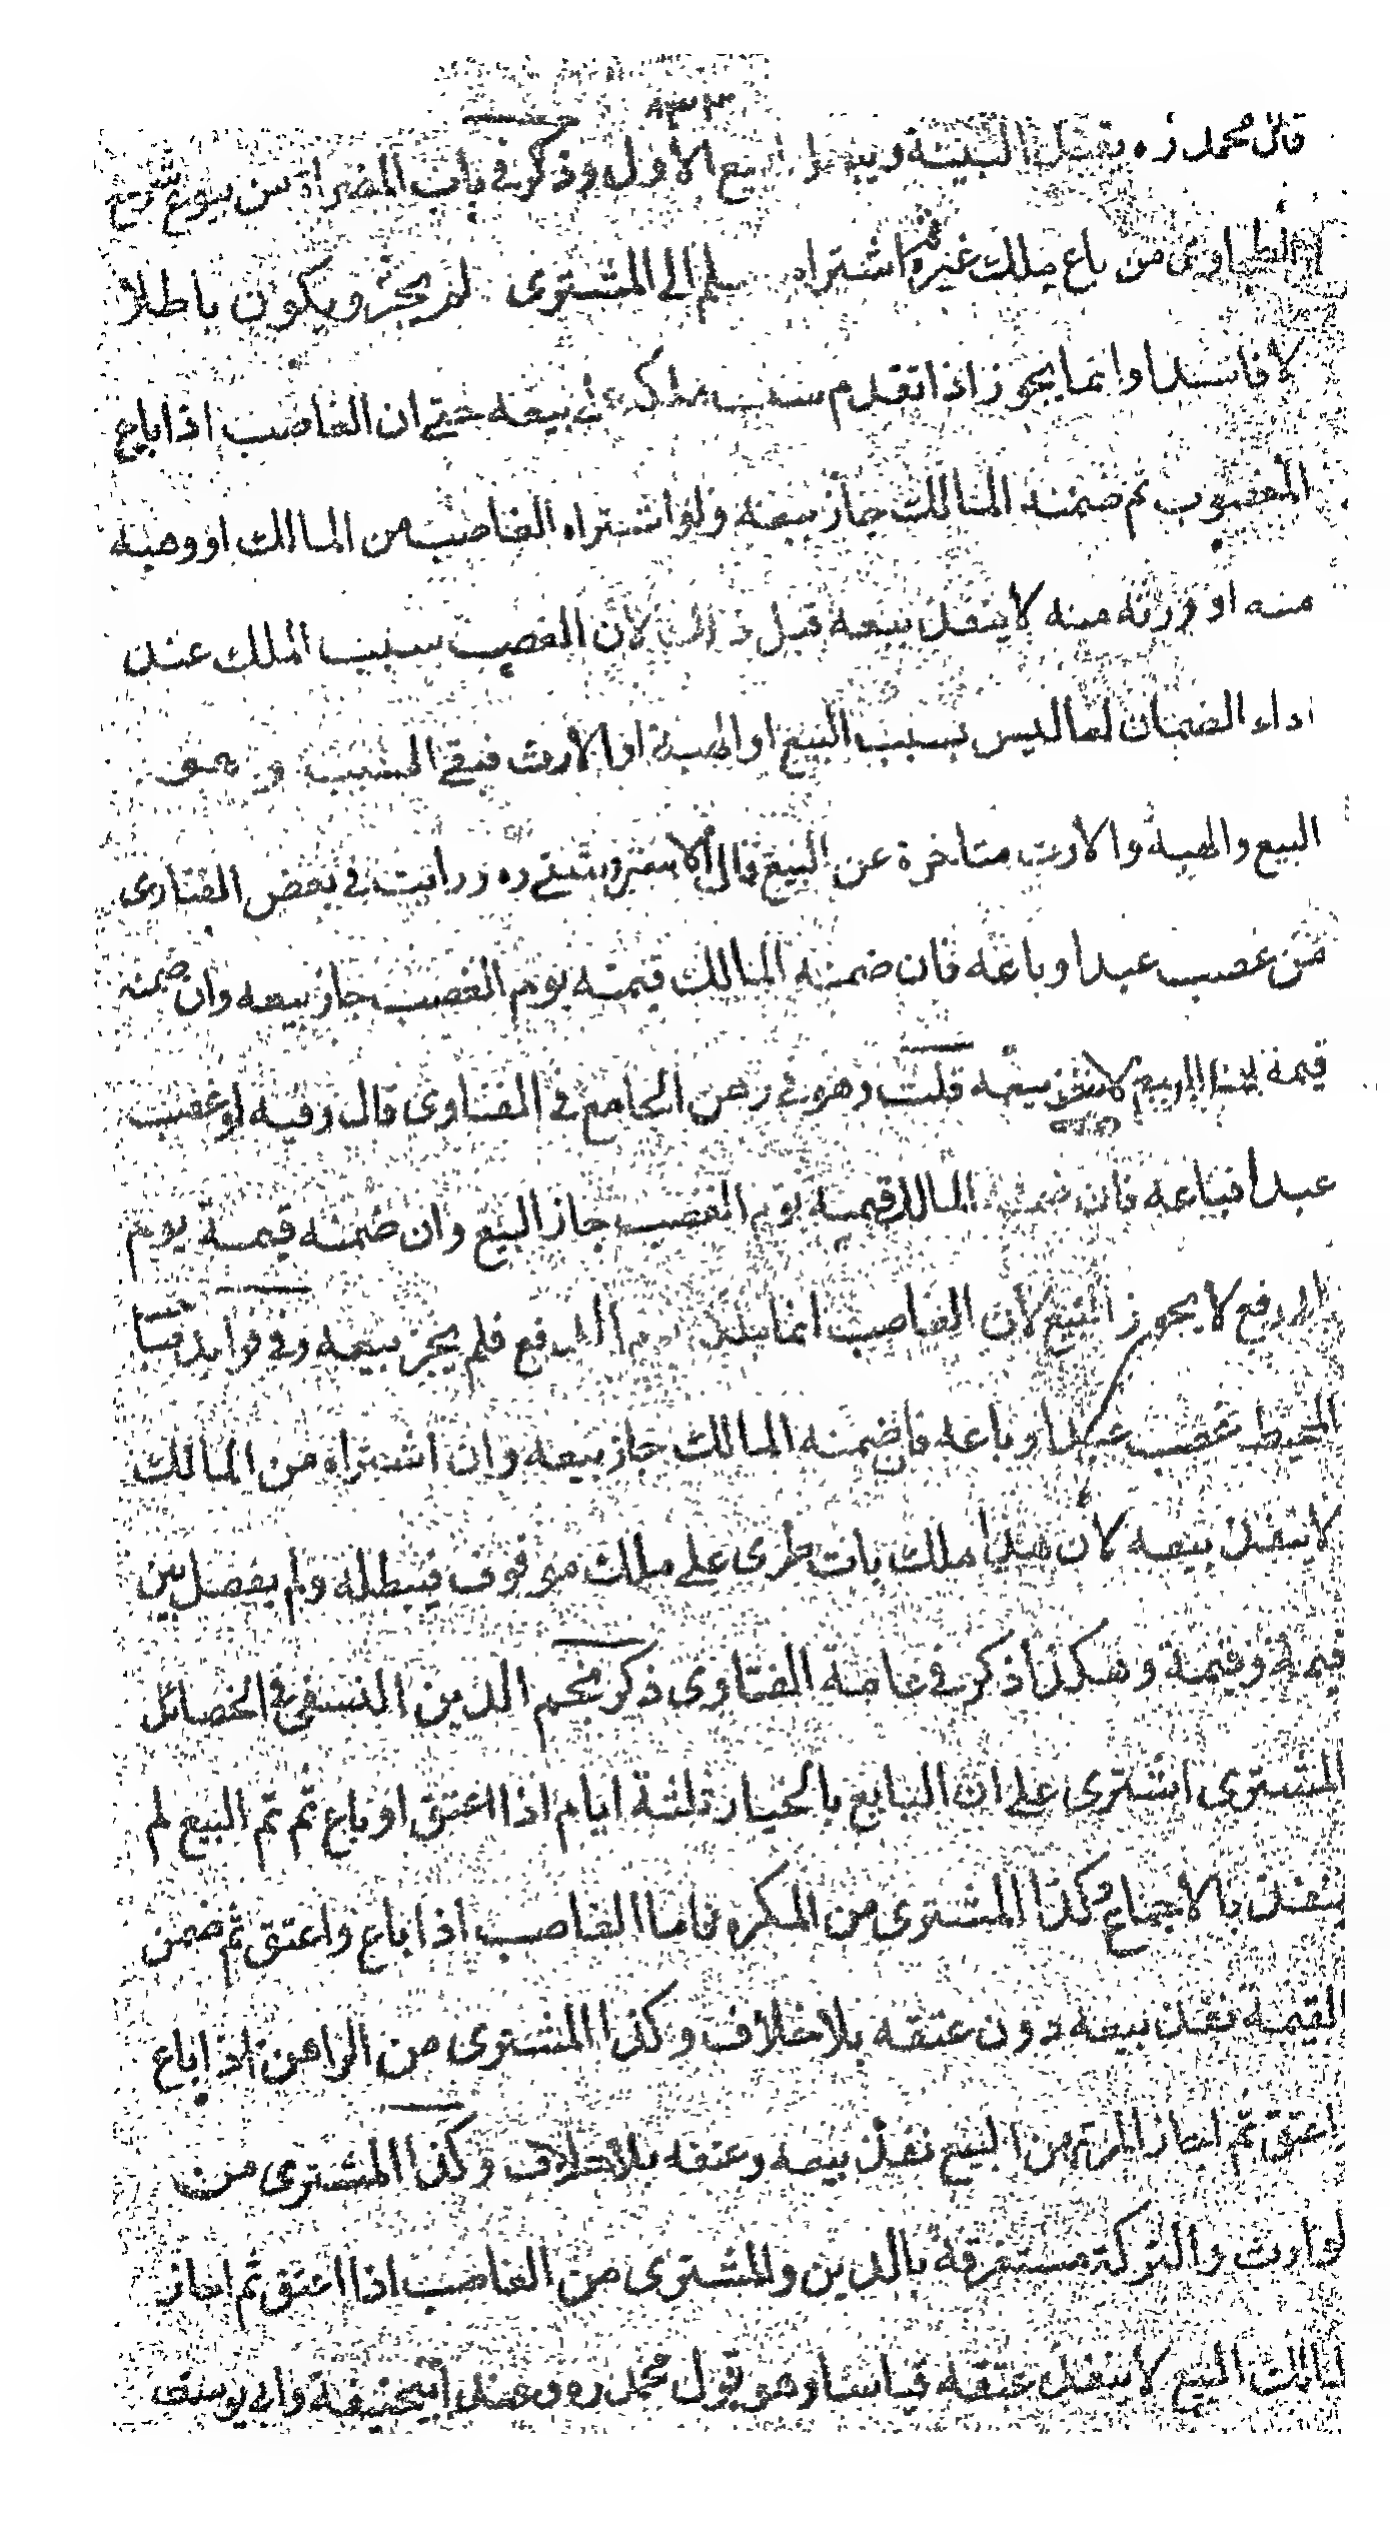 ٨٣٣
قال محمد ره تقبل البينة ويبطل البيع الاول وذكر في باب المصراة من بيوع شرح
الطحاوى من باع ملك غيره ثم اشتراه وسلم الى المشترى لم يجز ويكون باطلا
لا فاسدا وانما يجوز اذا تقدم سبب ملكه على بيعه حتى ان الغاصب اذا باع
المغصوب ثم ضمنه المالك جاز بيعه ولو اشتراه الغاصب من المالك او وهبه
منه او ورثه منه لا ينفذ بيعه قبل ذلك لان الغصب سبب الملك عند
اداء الضمان اما ليس بسبب البيع او الهبة او الارث فبقى السبب
البيع والهبة والارث متاخرة عن البيع قال الاستروشنى ره ورايت في بعض الفتاوى
من غصب عبدا وباعه فان ضمنه المالك قيمته يوم الغصب جاز بيعه وان ضمنه
قيمة يوم البيع لا يجوز بيعه قلت وهو في رهن الجامع في الفتاوى قال وفيه لو غصب
عبدا فباعه فان ضمنه المالك قيمته يوم الغصب جاز البيع وان ضمنه قيمته يوم
الدفع لا يجوز البيع لان الغاصب انما يملك يوم الدفع فلم يجز بيعه وفي فوايد
المحيط غصب عبدا وباعه فان ضمنه المالك جاز بيعه وان اشتراه من المالك
لا ينفذ بيعه لان هذا ملك بات طرى على ملك موقوف فيبطله ولم يفصل بين
قيمة وقيمة وهكذا ذكر في عامة الفتاوى ذكر نجم الدين النسفى في الخصائل
المشترى اشترى على ان البايع بالخيار ثلثة ايام اذا اعتق او باع ثم تم البيع لم
ينفذ بالاجماع وكذا المشترى من المكره فاما الغاصب اذا باع واعتق ثم ضمن
القيمة نفذ بيعه دون عتقه بلا خلاف وكذا المشترى من الراهن اذا باع
اعتق ثم اجاز المرتهن البيع نفذ بيعه وعتقه بلا خلاف وكذا المشترى من
لوارث والتركة مستغرقة بالدين والمشترى من الغاصب اذا اعتق ثم اجاز
لمالك البيع لا ينفذ عتقه قياسا وهو قول محمد ره وعند ابيحنيفة وابى يوسف